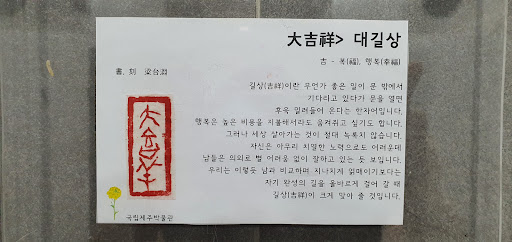 大吉祥> 대길상
吉 - 복(福), 행복(幸福)
書, 刻 梁台淵
길상(吉祥)이란 무언가 좋은 일이 문 밖에서
기다리고 있다가 문을 열면
후욱 밀려들어 온다는 한자어입니다.
행복은 높은 비용을 지불해서라도 움켜쥐고 싶기도 합니다.
그러나 세상 살아가는 것이 절대 녹록치 않습니다.
자신은 아무리 치열한 노력으로도 어려운데
남들은 의외로 별 어려움 없이 잘하고 있는 듯 보입니다.
우리는 이렇듯 남과 비교하며 지나치게 얽매이기보다는
자기 완성의 길을 올바르게 걸어 갈 때
길상(吉祥)이 크게 맞아 줄 것입니다.
大吉祥
국립제주박물관